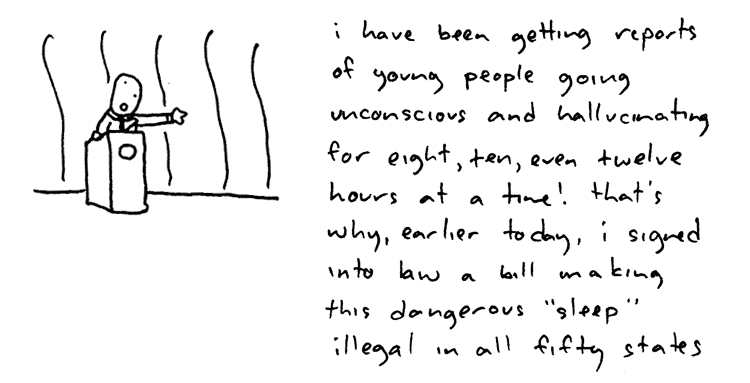 i have been getting reports
of young people going
unconscious and hallucinating
for eight, ten, even twelve
hours at a time! that's
why, earlier today, i signed
into law a bill making
this dangerous "sleep"
illegal in all fifty states